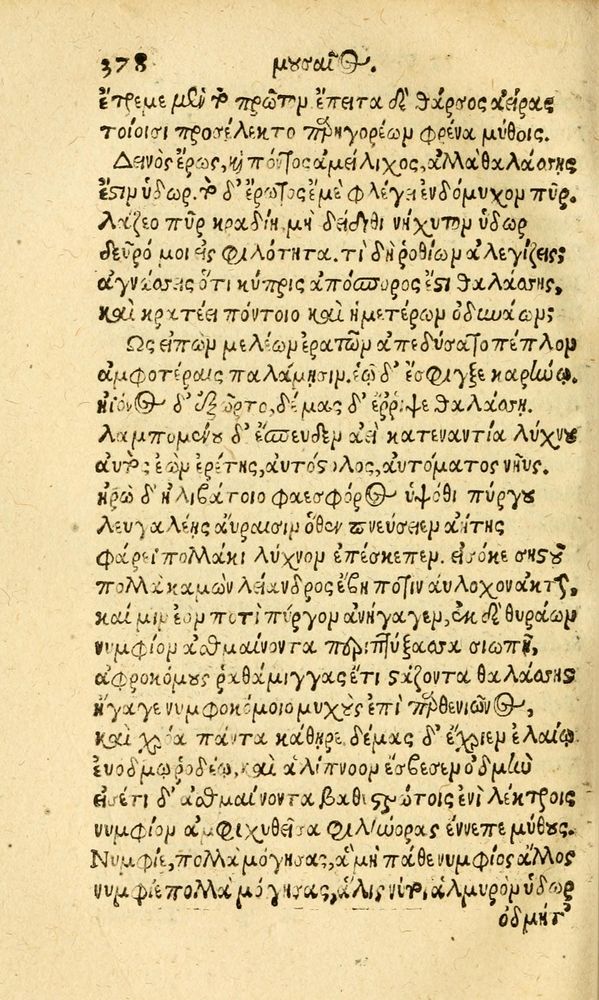 378 μουσαίος.
ἔτρεμε μὲν τὸ πρῶτομ ἔπειτα δὲ θάρσος ἀείρας
τοίοισι προσέλεκτο πρηγορέωμ φρένα μύθοις.
Δεινὸς ἔρως, καὶ πόντος ἀμείλιχος, ἀλλὰ θαλάσσης
ἐστὶμ ὑδωρ. τὸ δ' ἔρωτος ἐμὲ φλέγει ἐνδόμυχομ πῦρ.
λάζεο πῦρ κραδίη, μὴ δείδιθι νήχυτομ ὑδωρ
δεῦρό μοι εἰς φιλότητα. τί δὴ ῥοθίωμ ἀλεγίζεις;
ἀγνώσσεις ὅτι κύπρις ἀπόσπορος ἐστὶ θαλάσσης,
καὶ κρατέει πόντοιο καὶ ἡμετέρωμ ὀδυνάωμ;
Ως εἰπὼμ μελέωμ ἐρατῶμ ἀπεδύσατο πέπλομ
ἀμφοτέραις παλάμησιμ. ἑῷ δ' ἔσφιγξε καρήνῳ.
ἠϊόνος δ' ἐξῶρτο, δέμας δ' ἔρριψε θαλάσσῃ.
λαμπομένου δ' ἔσπευδεμ ἀεὶ κατεναντία λύχνου
αὐτὸς ἐὼμ ἐρέτης, αὐτόστολος, αὐτόματος νηῦς.
ἡρὼ δ' ἠλιβάτοιο φαεσφόρος ὑψόθι πύργου
λευγαλέης αὔραισιμ ὅθεν πνεύσειεμ ἀήτης
φάρεϊ πολλάκι λύχνομ ἐπέσκεπεμ. εἰσόκε σηστοῦ
πολλὰ καμὼν λείανδρος ἔβη ποτὶ ναυλοχον ἀκτήν,
καί μιμ ἑὸμ ποτὶ πύργομ ἀνήγαγεμ, ἐκ δὲ θυράωμ
νυμφίομ ἀσθμαίνοντα περιπτύξασα σιωπῇ,
ἀφροκόμους ῥαθάμιγγας ἔτι στάζοντα θαλάσσης
ἤγαγε νυμφοκόμοιο μυχοὺς ἐπὶ παρθενιῶνος,
καὶ χρόα πάντα κάθηρε δέμας δ' ἔχριεμ ἐλαίῳ
ἐυόδμῳ ῥοδέῳ, καὶ ἁλίπνοομ ἔσβεσεμ ὀδμὴν
εἰσέτι δ' ἀσθμαίνοντα βαθυστρώτοις ἐνὶ λέκτροις
νυμφίομ ἀμφιχυθεῖσα φιλήνορας ἔννεπε μύθους.
Νυμφίε, πολλὰ μόγησας, ἃ μὴ πάθε νυμφίος ἄλλος
νυμφίε πολλὰ μόγησας, ἅλις νύ τοι ἁλμυρὸμ ὑδωρ
ὀδμήτ'